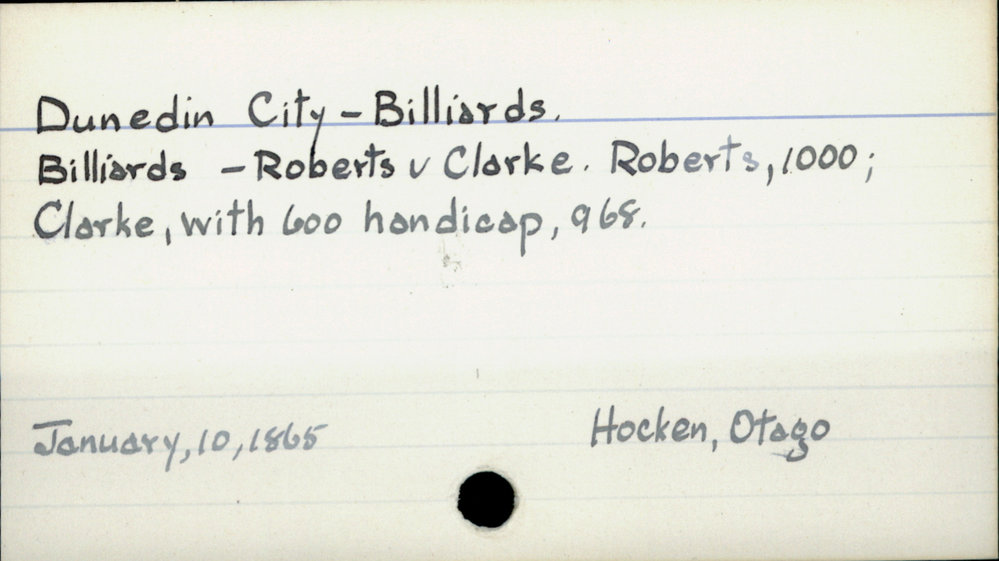 Dunedin City - Billiards.
Billiards - Roberts v Clarke. Roberts, 1000;
Clarke, with 600 handicap, 968.
January, 10, 1865
Hocken, Otago